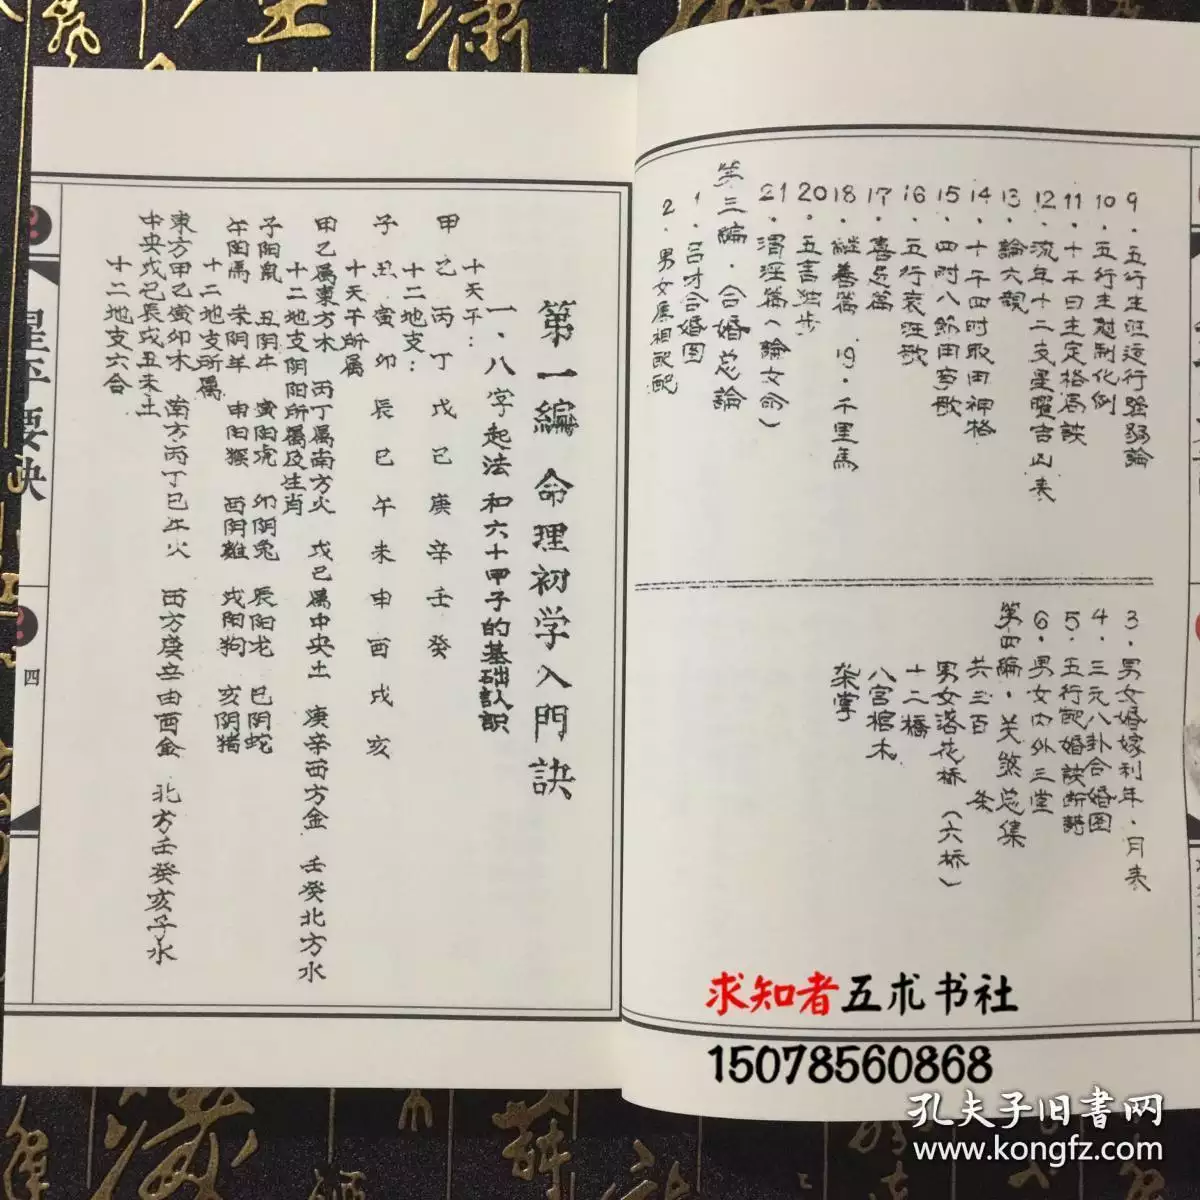 9．五行生旺运行强弱論
10．五行生尅制化例
11．十干日主定格局訣
12．流年十二支星曜吉凶表
13．論六親
14．十干四时取用神格
15．四时八節田宅歌
16．五行衰旺歌
17．喜忌篇
18．継善篇　19．千里馬
20．五言独步
21．渭泾篇（論女命）
第三編．合婚总論
1．吕才合婚图
2．男女属相配配
3．男女婚嫁利年．月表
4．三元八卦合婚图
5．五行配婚訣断
6．男女内外三堂
第四編．关煞总集
共三百　条
男女落花桥（六桥）
十二橋
八宫棺木
柴掌
第一編 命理初学入門訣
一．八字起法和六十甲子的基础认识
十天干：
甲乙丙丁戊己庚辛壬癸
十二地支：
子丑寅卯辰巳午未申酉戌亥
十天干所属
甲乙属東方木　丙丁属南方火　戊己属中央土　庚辛西方金　壬癸北方水
十二地支阴阳所属及生肖
子阳鼠　丑阴牛　寅阳虎　卯阴兔　辰阳龙　巳阴蛇
午阳馬　未阴羊　申阳猴　酉阴雞　戌阳狗　亥阴猪
十二地支所属
東方甲乙寅卯木　南方丙丁巳午火　西方庚辛申酉金　北方壬癸亥子水
中央戊己辰戌丑未土
十二地支六合
星平要訣
四
求知者五术书社
15078560868
孔夫子旧書网
www.kongfz.com